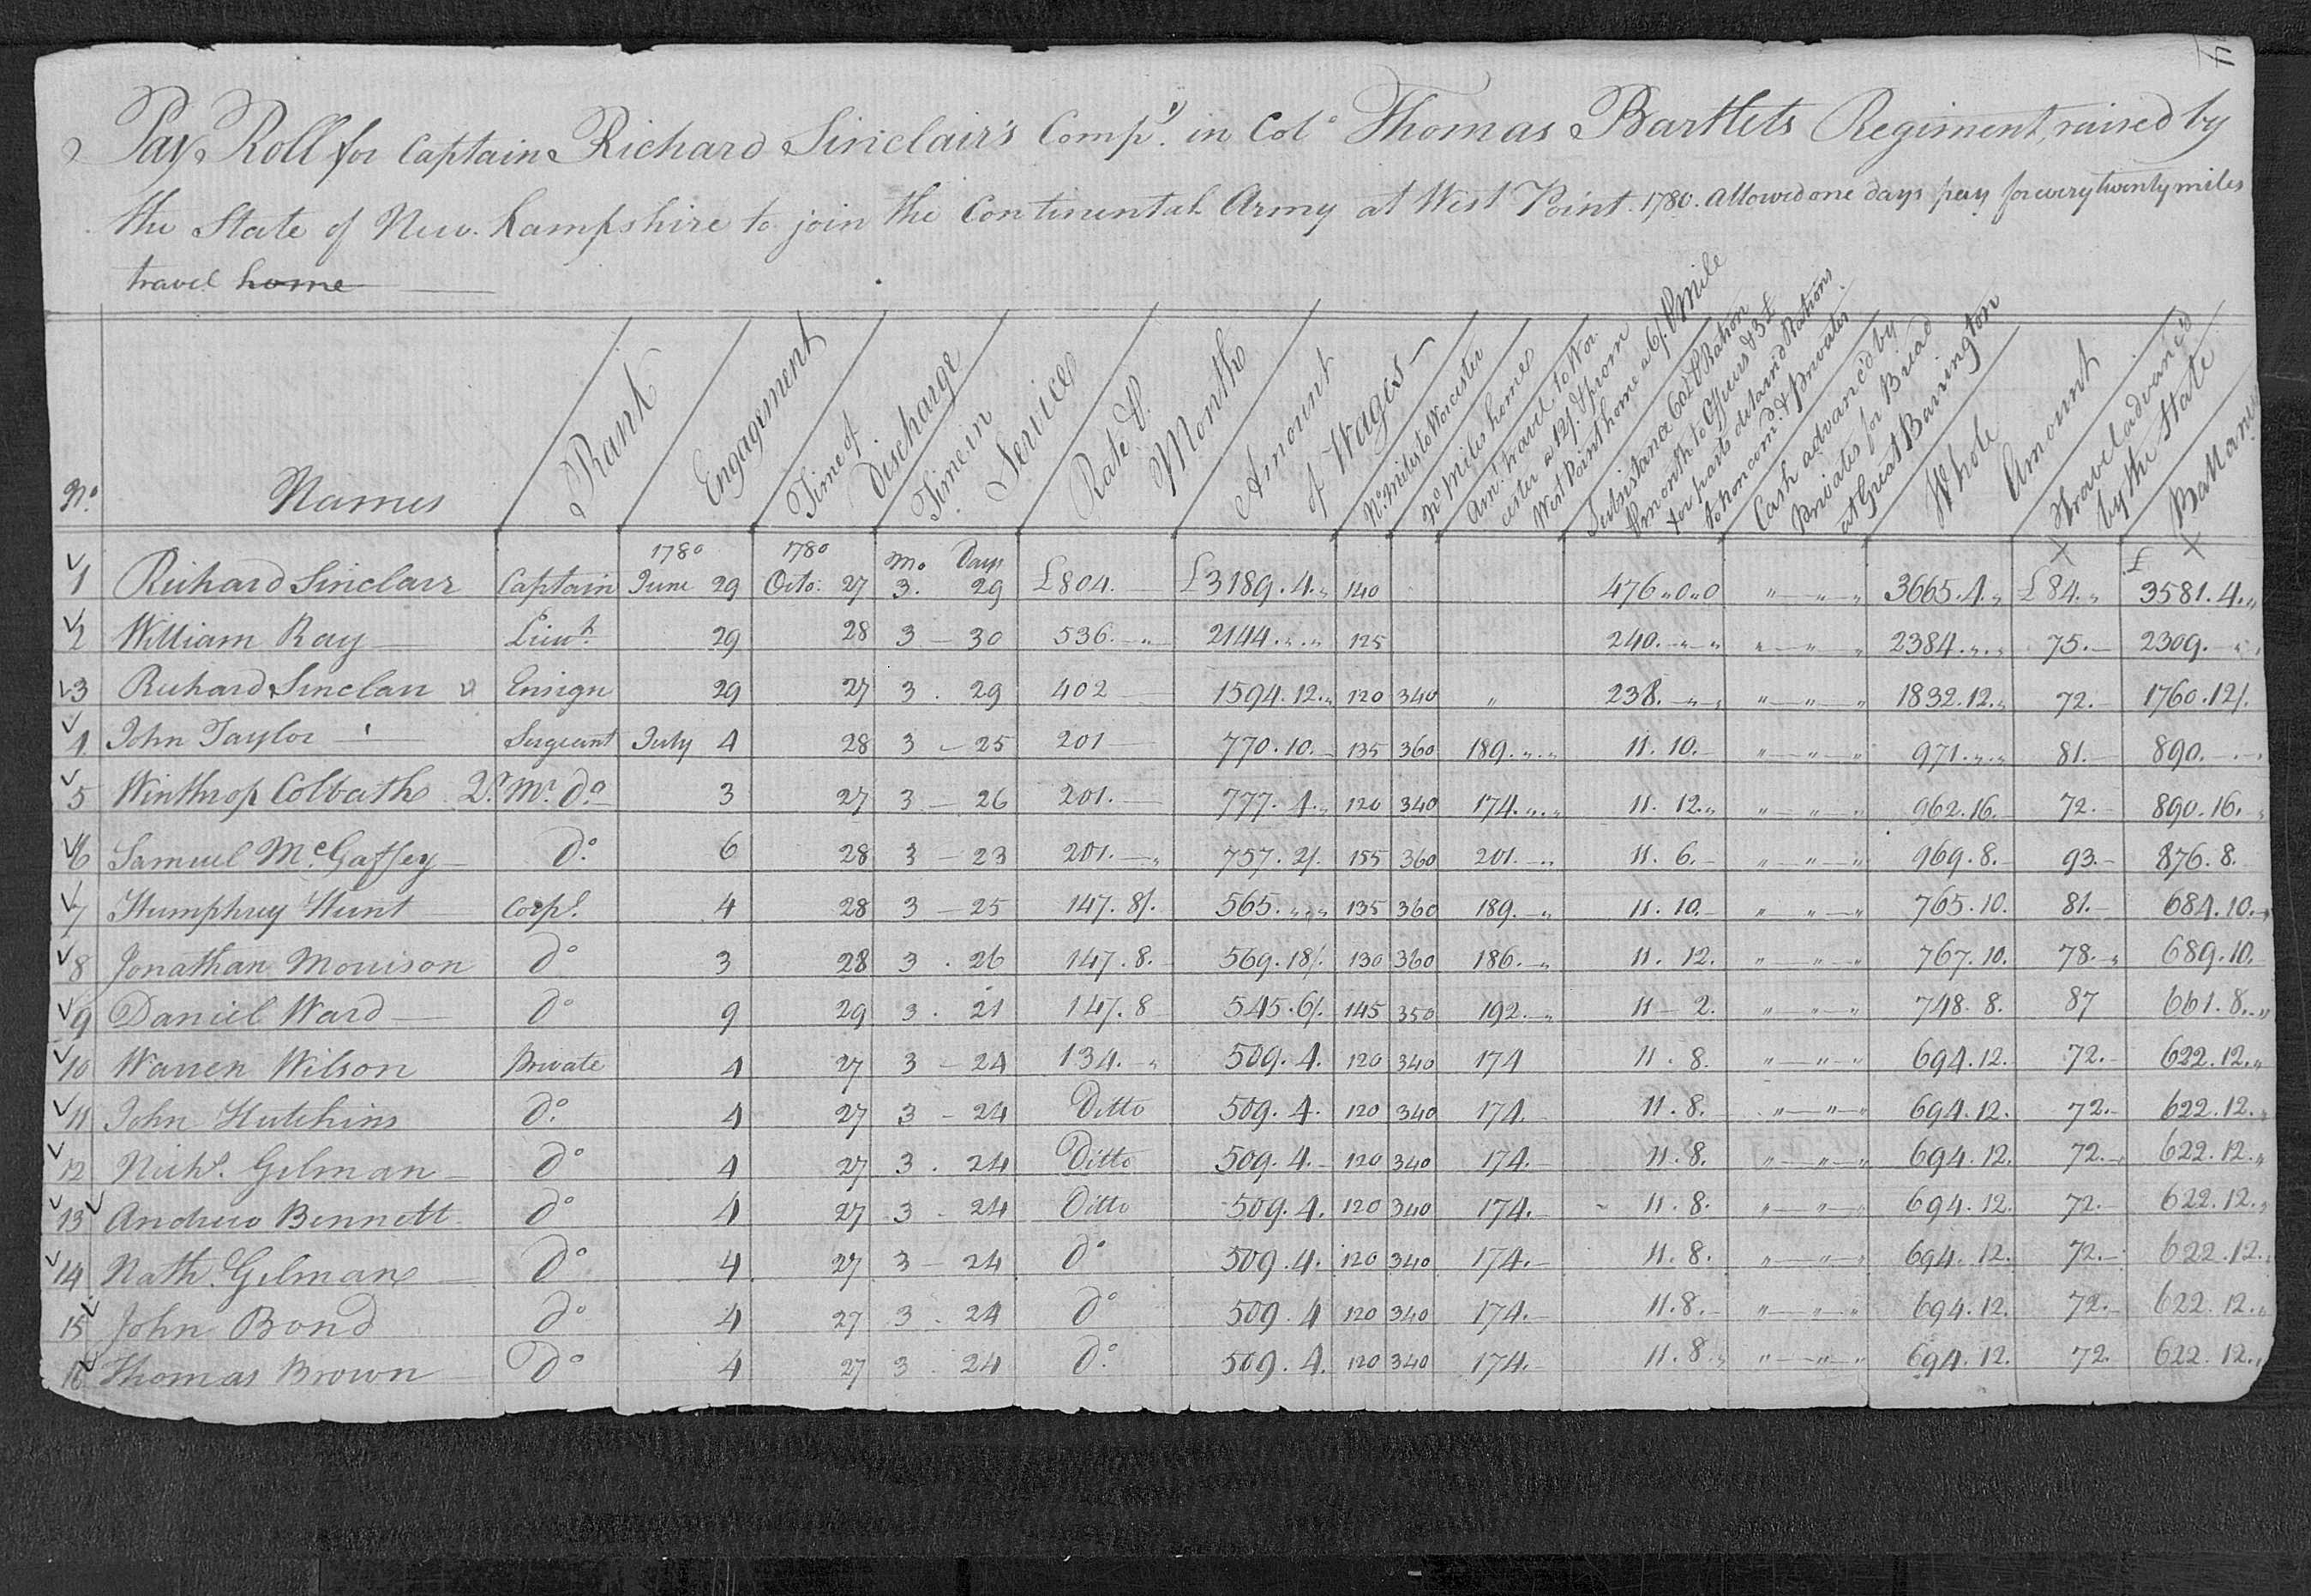 Pay Roll for Captain Richard Sinclair's Compy. in Colo Thomas Bartlets Regiment, raised by
the State of New Hampshire to join the Continental Army at West Point. 1780. Allowed one days pay for every twenty miles
travel home
No. Names Rank Engagement Time of Discharge Time in Service Rate P. Month Amount of Wages No. Miles to Worcester No. Miles home Amt. travel to Worcester a 12/. & from West Point home a 6/. P Mile Subsistance 60£ P Ration P month to Officers & 3£ for parts detaind Rations to non comd. & privates Cash advanc'd by privates for Bread at Great Barrington Whole Amount Travel advanc'd by the State Ballance
1780 1780 Mo Days
1 Richard Sinclair Captain June 29 Octo. 27 3. 29 £804. £3189.4.„ 140 476„0„0 „ „ „ 3665.4.„ £84.„ £3581.4.„
2 William Ray Lieut. 29 28 3 30 536. 2144.„.„ 125 240. „ „ „ „ „ 2384.„.„ 75. 2309. „
3 Richard Sinclair Ensign 29 27 3. 29 402 1594.12.„ 120 340 „ 238. „ „ „ „ „ 1832.12.„ 72. 1760.12/.
4 John Taylor Sergeant July 4 28 3 25 201 770.10. 135 360 189.„.„ 11.10. „ „ „ 971.„.„ 81. 890.
5 Winthrop Colbath Qr. Mr. do 3 27 3 26 201. 777.4.„ 120 340 174.„.„ 11.12.„ „ „ „ 962.16. 72. 890.16.
6 Samuel McGaffey do. 6 28 3 23 201. 757.2/. 155 360 201. 11.6. „ „ „ 969.8. 93. 876.8.
7 Humphrey Hunt Corpl. 4 28 3 25 147.8/. 565.„.„ 135 360 189. 11.10. „ „ „ 765.10. 81. 684.10.
8 Jonathan Morrison do 3 28 3. 26 147.8. 569.18/. 130 360 186. 11.12. „ „ „ 767.10. 78. 689.10.
9 Daniel Ward do 9 29 3. 21 147.8 545.6/. 145 350 192. 11 2. „ „ „ 748.8. 87 661.8.„
10 Warren Wilson Private 4 27 3 24 134. 509.4. 120 340 174 11.8. „ „ „ 694.12. 72. 622.12.„
11 John Hutchins do. 4 27 3 24 Ditto 509.4. 120 340 174. 11.8. „ „ „ 694.12. 72. 622.12.
12 Nichs. Gilman do 4 27 3. 24 Ditto 509.4. 120 340 174. 11.8. „ „ „ 694.12. 72. 622.12.„
13 Andrew Bennett do 4 27 3 24 Ditto 509.4. 120 340 174. 11.8. „ „ „ 694.12. 72. 622.12.„
14 Nath. Gilman do 4 27 3 24 do 509.4. 120 340 174. 11.8. „ „ „ 694.12. 72. 622.12.
15 John Bond do 4 27 3. 24 do 509.4 120 340 174. 11.8. „ „ „ 694.12. 72. 622.12.„
16 Thomas Brown Do 4 27 3. 24 do. 509.4. 120 340 174. 11.8.„ „ „ „ 694.12. 72. 622.12.